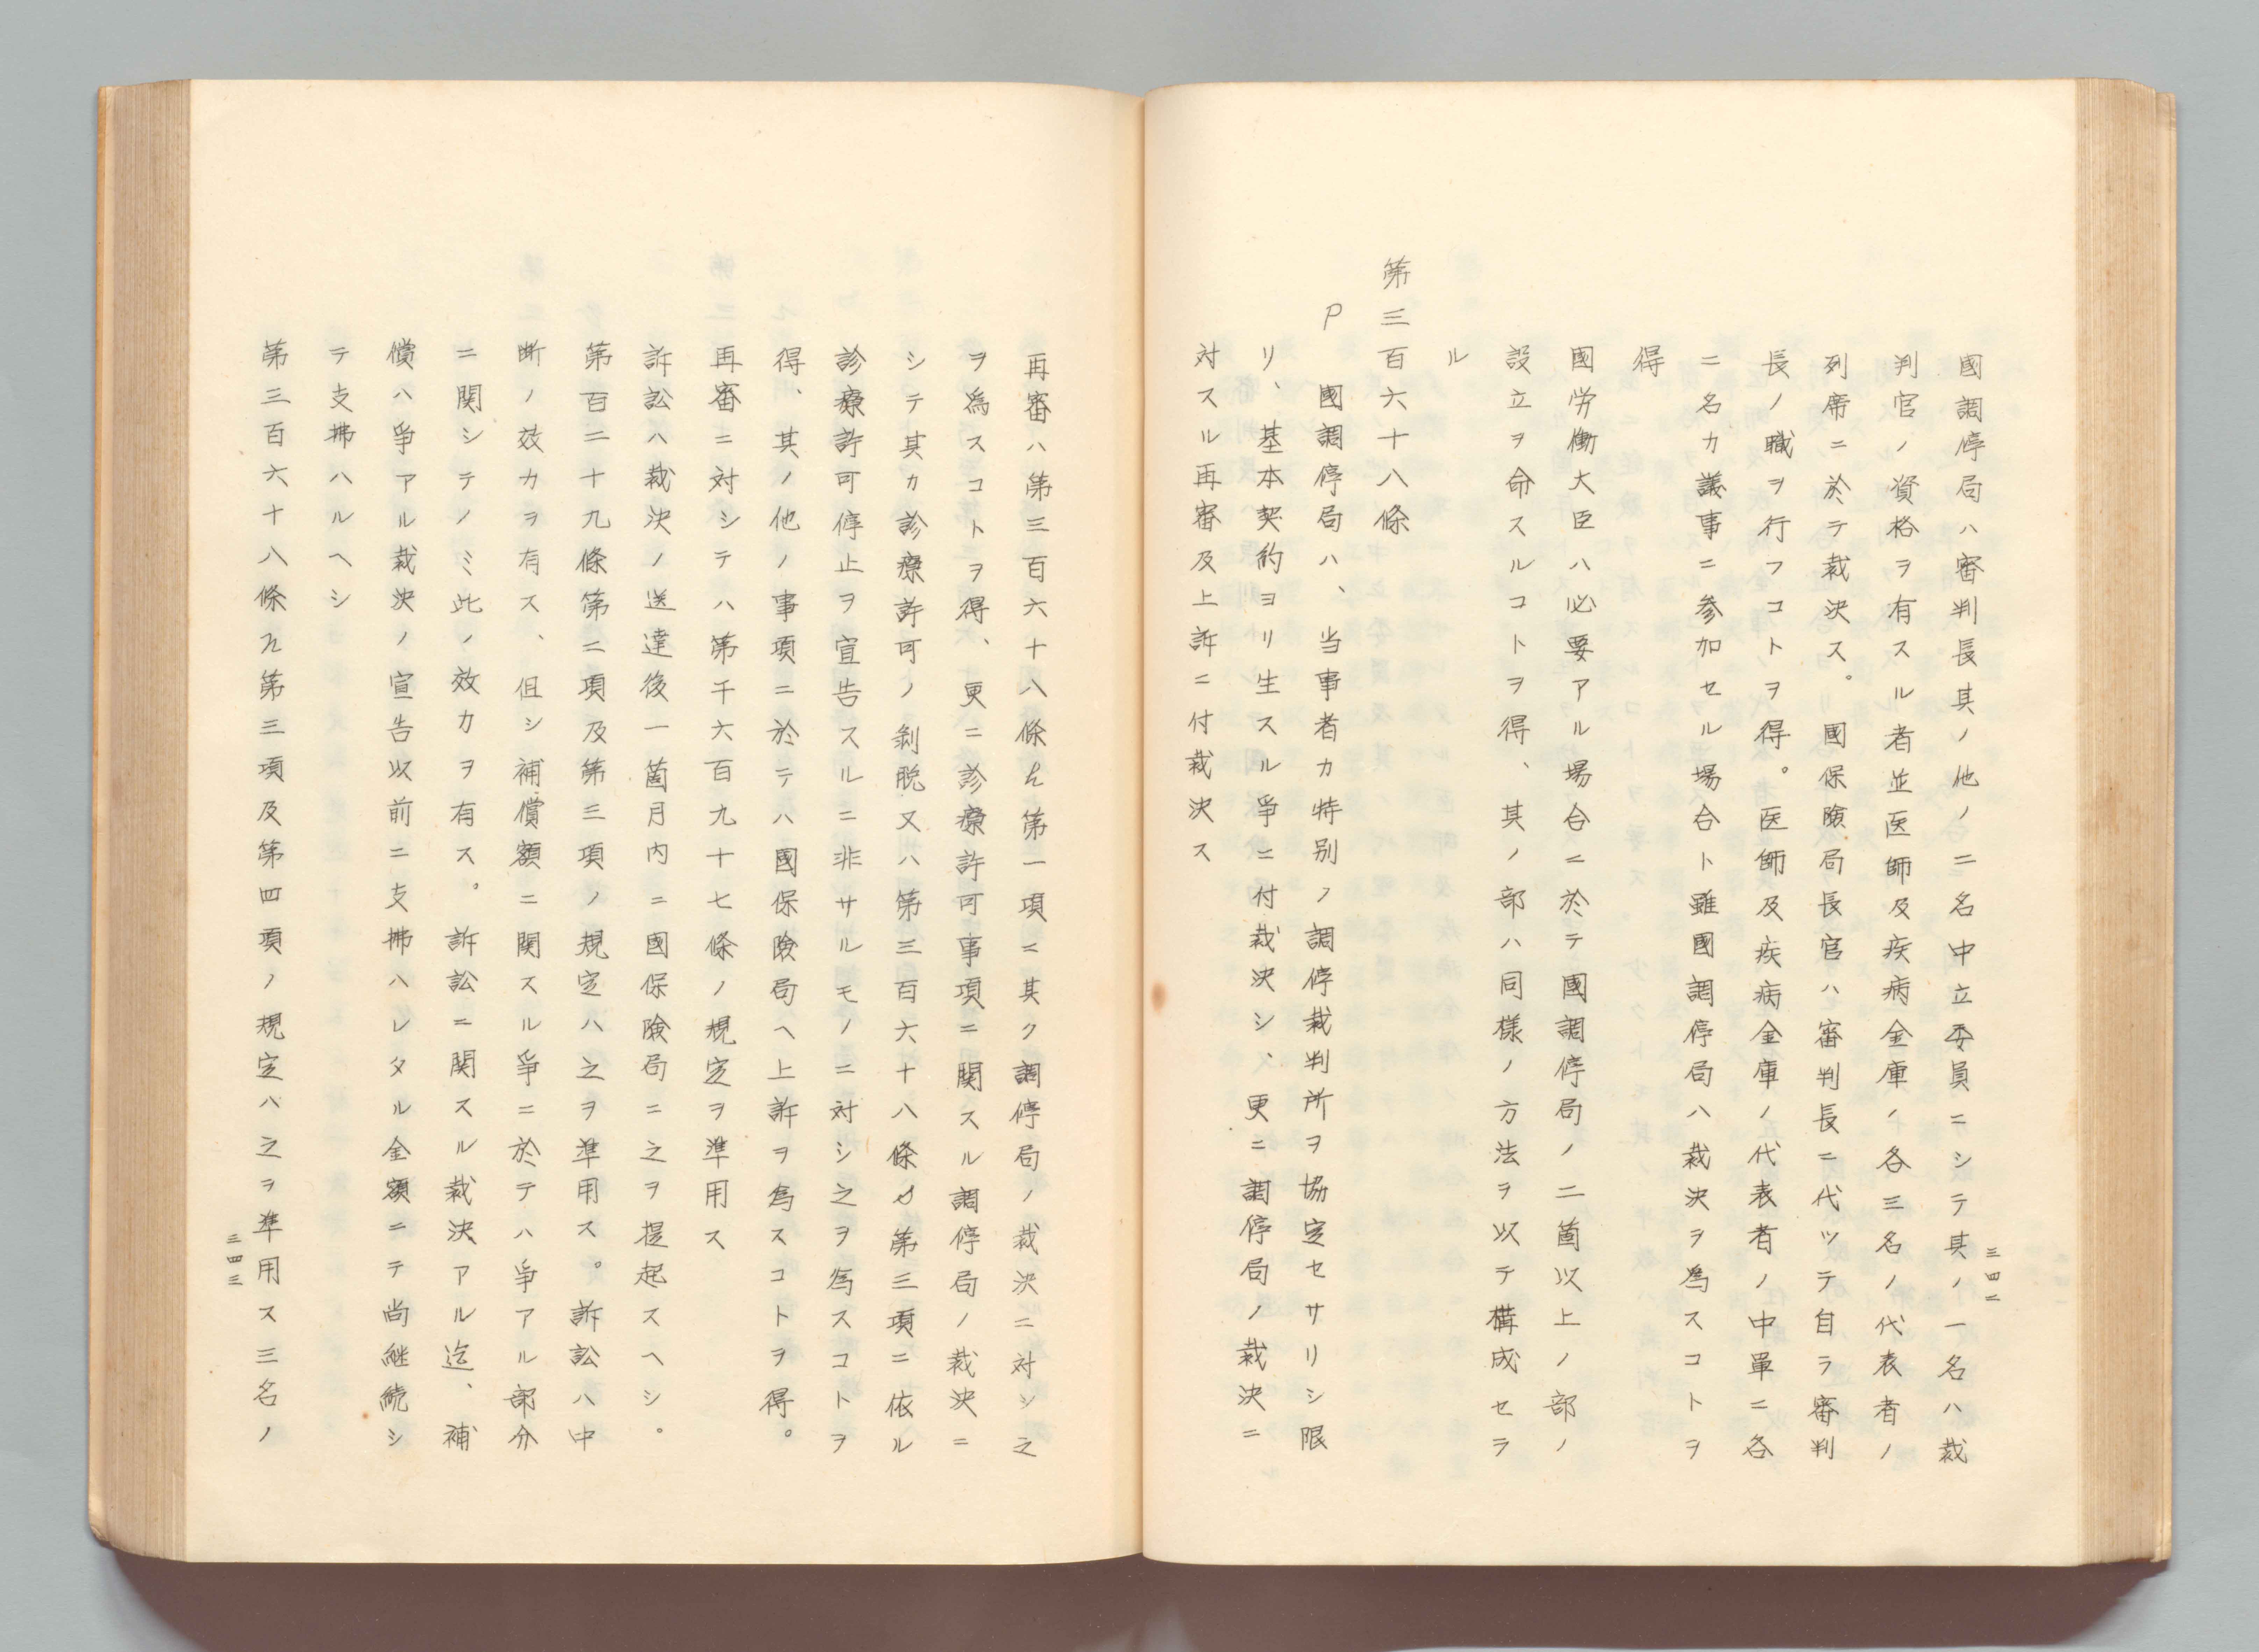 國調停局ハ審判長其ノ他ノ二名中立委員ニシテ其ノ一名ハ裁
判官ノ資格ヲ有スル者並医師及疾病金庫ノ各三名ノ代表者ノ
列席ニ於テ裁決ス。國保險局長官ハ審判長ニ代ツテ自ラ審判
長ノ職ヲ行フコトヲ得。医師及疾病金庫ノ代表者ノ中單ニ各
二名カ議事ニ参加セル場合ト雖國調停局ハ裁決ヲ爲スコトヲ
得
國労働大臣ハ必要アル場合ニ於テ國調停局ノ二箇以上ノ部ノ
設立ヲ命スルコトヲ得、其ノ部ハ同樣ノ方法ヲ以テ構成セラ
ル
第三百六十八條
P
國調停局ハ、当事者カ特別ノ調停裁判所ヲ協定セサリシ限
リ、基本契約ヨリ生スル爭ニ付裁決シ、更ニ調停局ノ裁決ニ
対スル再審及上訴ニ付裁決ス
三四二
再審ハ第三百六十八條h第一項ニ基ク調停局ノ裁決ニ対シ之
ヲ爲スコトヲ得、更ニ診療許可事項ニ関スル調停局ノ裁決ニ
シテ其カ診療許可ノ剝脱又ハ第三百六十八條 第三項ニ依ル
診療許可停止ヲ宣告スルニ非サルモノニ対シ之ヲ爲スコトヲ
得、其ノ他ノ事項ニ於テハ國保險局ヘ上訴ヲ爲スコトヲ得。
再審ニ対シテハ第千六百九十七條ノ規定ヲ準用ス
訴訟ハ裁決ノ送達後一箇月内ニ國保險局ニ之ヲ提起スヘシ。
第百二十九條第二項及第三項ノ規定ハ之ヲ準用ス。訴訟ハ中
断ノ效力ヲ有ス、但シ補償額ニ関スル爭ニ於テハ爭アル部分
ニ関シテノミ此ノ效力ヲ有ス。訴訟ニ関スル裁決アル迄、補
償ハ爭アル裁決ノ宣告以前ニ支拂ハレタル金額ニテ尚継続シ
テ支拂ハルヘシ
第三百六十八條n第三項及第四項ノ規定ハ之ヲ準用ス三名ノ
三四三